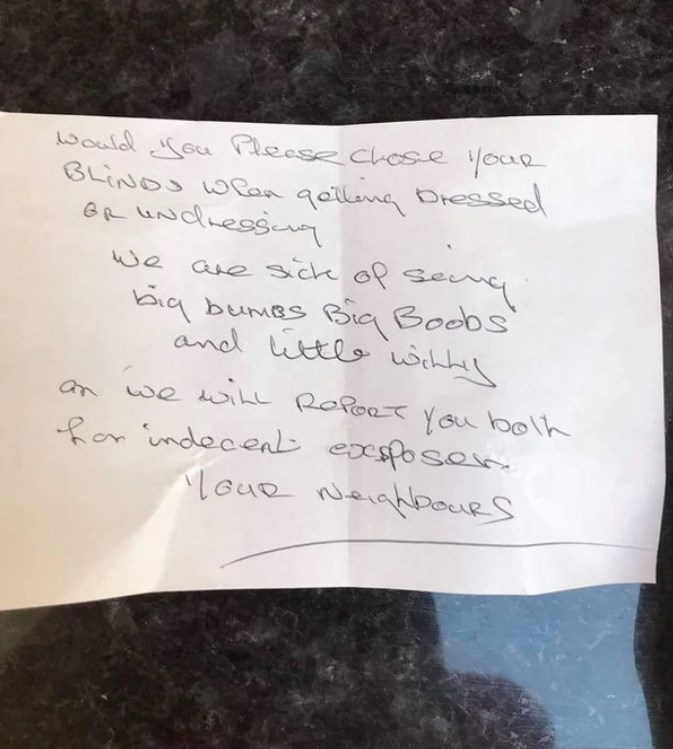 would you Please Close your
BLinDs when getting Dressed
OR unDressing
we are sick of seing
big bumbs Big Boobs
and little willy
or we will RePORT you both
for indecent exsposer.
YOUR NeighbOURS